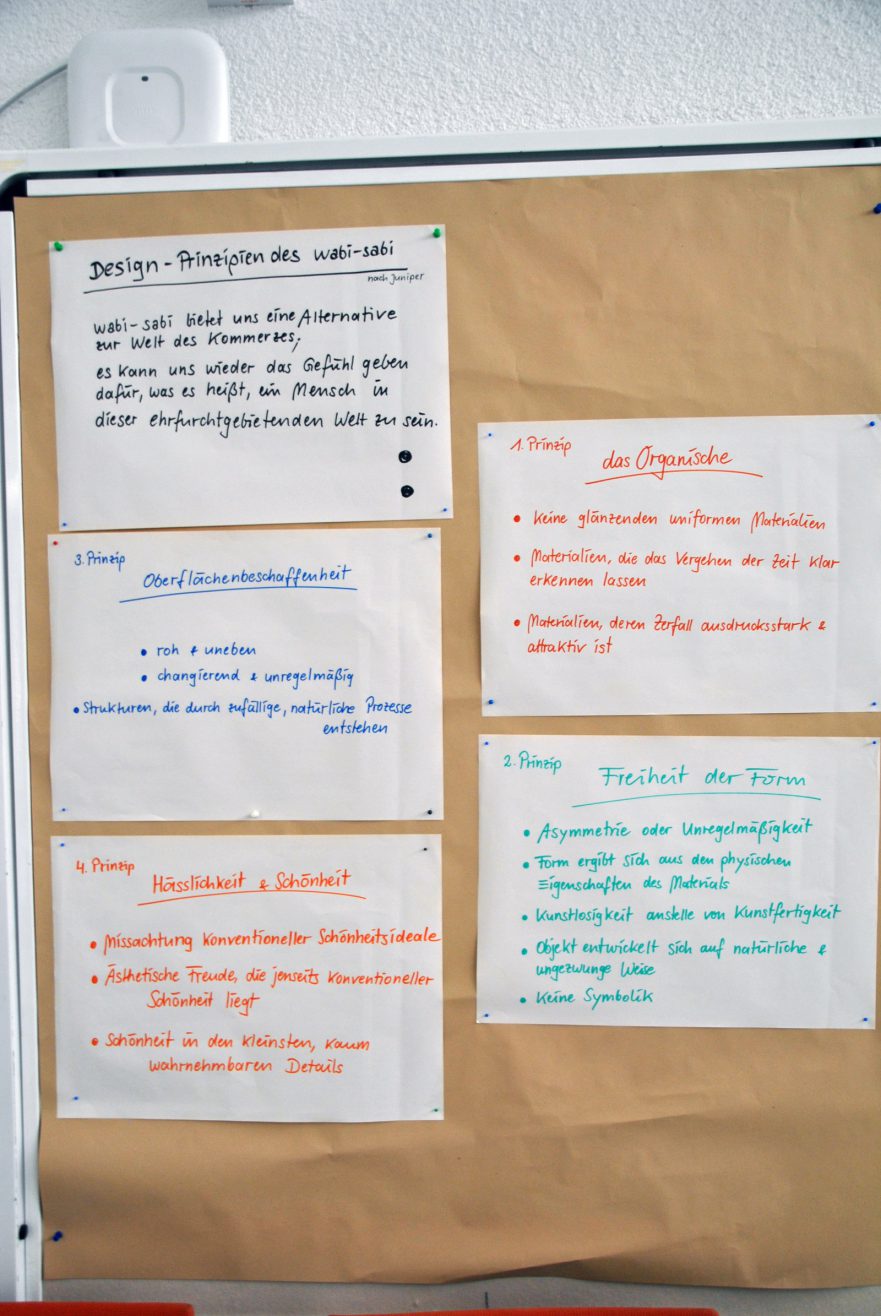 Design-Prinzipien des wabi-sabi
nach Juniper
wabi-sabi bietet uns eine Alternative
zur Welt des Kommerzes;
es kann uns wieder das Gefühl geben
dafür, was es heißt, ein Mensch in
dieser ehrfurchtgebietenden Welt zu sein.
1. Prinzip
das Organische
• Keine glänzenden uniformen Materialien
• Materialien, die das Vergehen der Zeit klar
erkennen lassen
• Materialien, deren Zerfall ausdrucksstark &
attraktiv ist
2. Prinzip
Freiheit der Form
• Asymmetrie oder Unregelmäßigkeit
• Form ergibt sich aus den physischen
Eigenschaften des Materials
• Kunstlosigkeit anstelle von Kunstfertigkeit
• Objekt entwickelt sich auf natürliche &
ungezwunge Weise
• Keine Symbolik
3. Prinzip
Oberflächenbeschaffenheit
• roh & uneben
• changierend & unregelmäßig
• Strukturen, die durch zufällige, natürliche Prozesse
entstehen
4. Prinzip
Hässlichkeit & Schönheit
• Missachtung konventioneller Schönheitsideale
• Ästhetische Freude, die jenseits konventioneller
Schönheit liegt
• Schönheit in den kleinsten, kaum
wahrnehmbaren Details